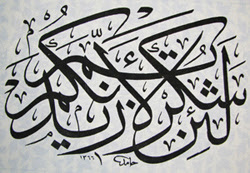 لَئِنْ شَكَرْتُمْ لَأَزِيدَنَّكُمْ
حامد ١٣٦٦